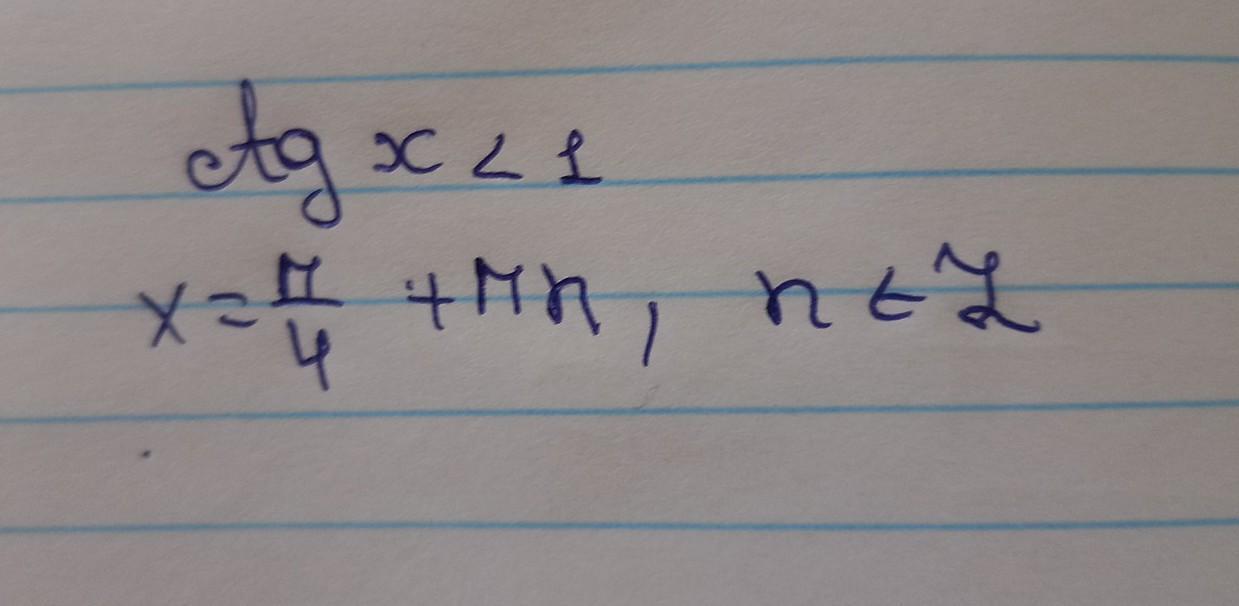 ctg x < 1
x = π/4 + πn, n ∈ Z